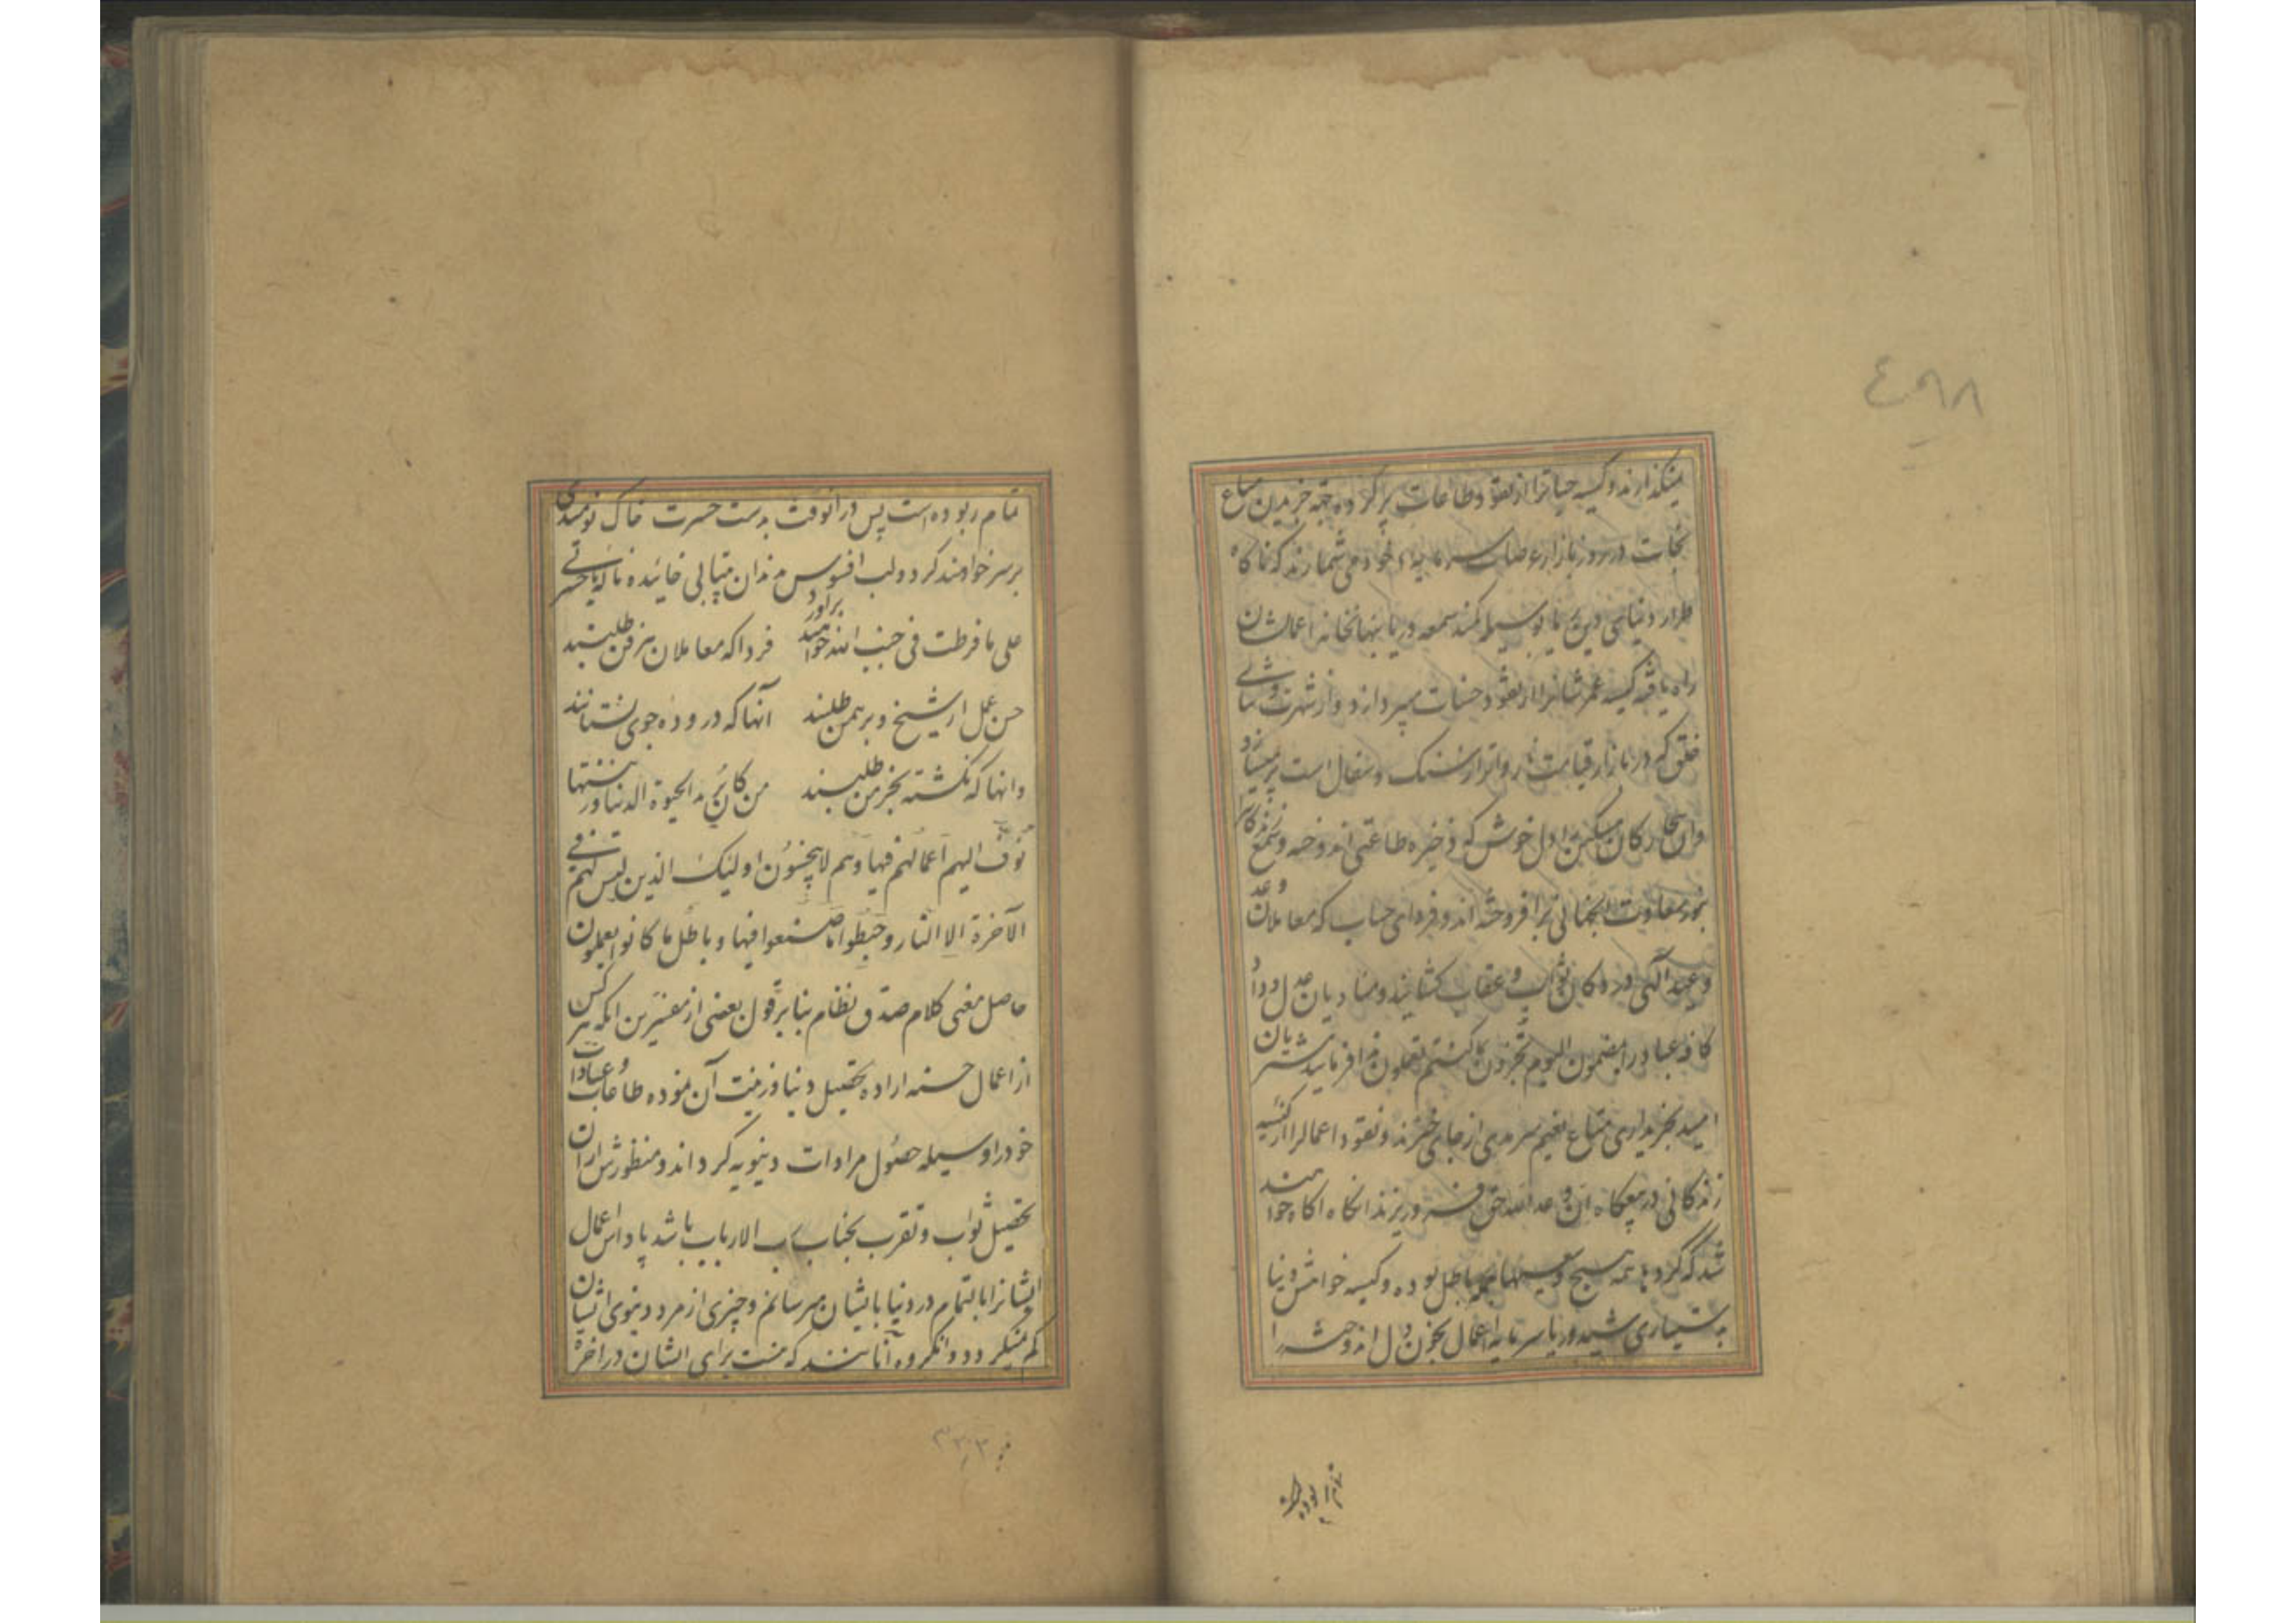 میگذارند و کیسه حیاترا از نقود طاعات پر کرده جهة خریدن متاع
نجات در روز بازار عرصات سرمایهٔ خود می شمارند که ناکاه
طرار دنیای دنی یا بوسیله کمند سمعه و ریا بنهانخانه اعمالشان
راه یافته کیسه عمرشانرا از نقود حسنات میپردازد و از شهرت و ستایش
خلق که در بازار قیامت نارواتر از سنک و سفال است پر میسازد
وان بیچارکان مسکین را دل خوش که ذخیره طاعتی اندوخته و شمع زندکانی
بنور سعادت
و وعید آلهی در دکان ثواب و عقاب کشایند و منادیان عدل و داد
کافه عباد را بمضمون الیوم تجزون ما کنتم تعملون ندا فرمایند مشتریان
امید بخریداری متاع نعیم سرمدی از جای خیزند و نقود اعمالرا از کیسه
زندکانی در پیچکاه آن وعد الله حق فرو ریزند انکاه اکاه خواهند
شد که کردها همه هیچ و سعیها همه باطل بوده و کیسه خواهش دنیا
بدستیاری شید و ریا سرمایه اعمال بخون دل اندوخته را
تمام ربوده
تمام ربوده است پس در انوقت بدست حسرت خاک نومیدی
بر سر خواهند کرد و لب افسوس بدندان بیتابی خائیده ناله یا حسرتی
علی ما فرطت فی جنب الله خواهند براورد فردا که معاملان هر فن طلبند
حسن عمل از شیخ و برهمن طلبند آنها که دروده جوی نستانند
وانها که نکشته بخرمن طلبند من کان یرید الحیوة الدنیا و زینتها
نوف الیهم اعمالهم فیها و هم لا یبخسون اولئک الذین لیس لهم فی
الآخرة الا النار و حبطوا ما صنعوا فیها و باطل ما کانوا یعملون
حاصل معنی کلام صدق نظام بنا بر قول بعضی از مفسرین انکه هر کس
از اعمال حسنه اراده تحصیل دنیا و زینت آن نموده طاعات و عبادات
خود را وسیله حصول مرادات دنیویه کرداند و منظورش از ان
تحصیل ثواب و تقرب بجناب رب الارباب باشد پاداش اعمال
ایشانرا بالتمام در دنیا بایشان میرسانم و چیزی از مزد دنیوی ایشان
کم نمیکردد و انکروه آنانند که نیست برای ایشان در اخرة